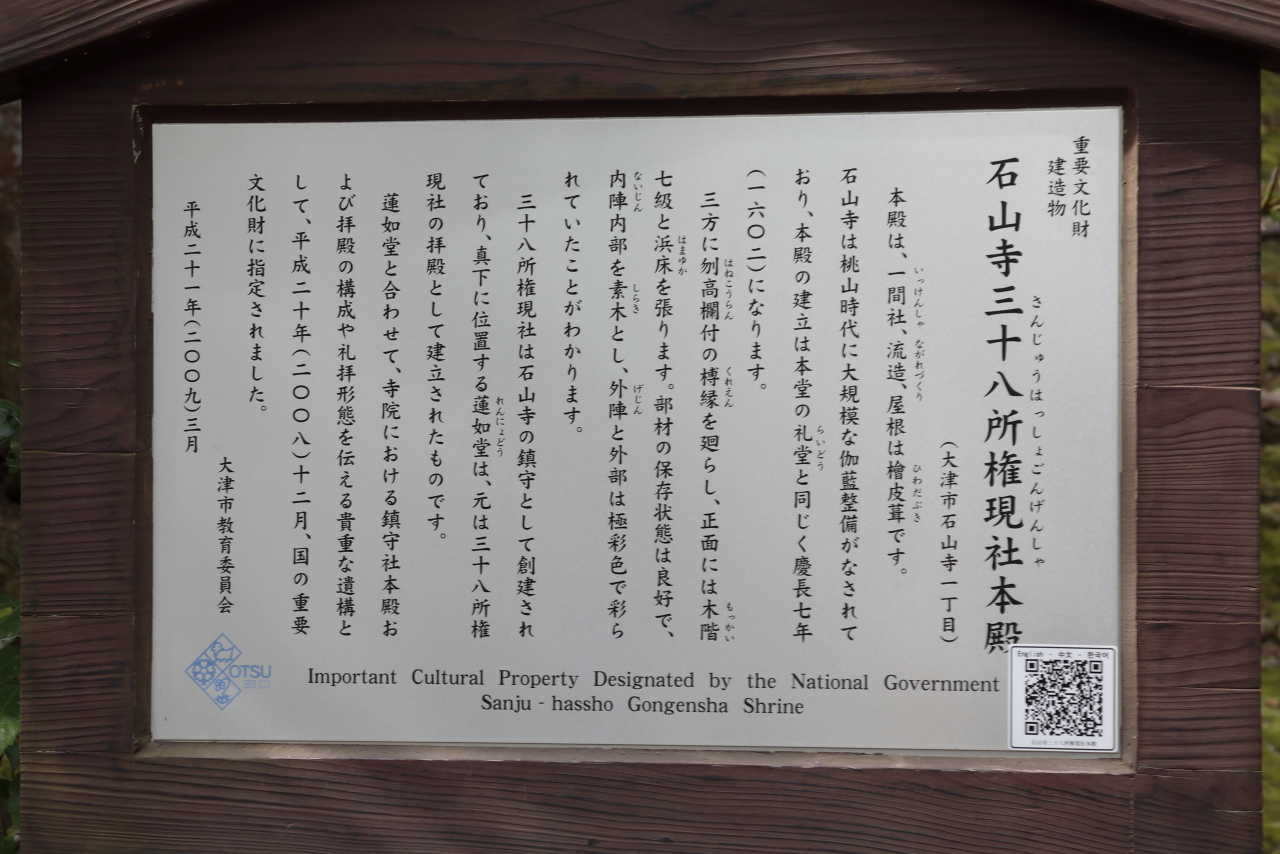 重要文化財
建造物
さんじゅうはっしょごんげんしゃ
石山寺三十八所権現社本殿
(大津市石山寺一丁目)
いっけんしゃ ながれづくり ひわだぶき
本殿は、一間社、流造、屋根は檜皮葺です。
石山寺は桃山時代に大規模な伽藍整備がなされて
らいどう
おり、本殿の建立は本堂の礼堂と同じく慶長七年
(一六〇二)になります。
はねこうらん くれえん もっかい
三方に刎高欄付の榑縁を廻らし、正面には木階
はまゆか
七級と浜床を張ります。部材の保存状態は良好で、
ないじん しらき げじん
内陣内部を素木とし、外陣と外部は極彩色で彩ら
れていたことがわかります。
三十八所権現社は石山寺の鎮守として創建され
れんにょどう
ており、真下に位置する蓮如堂は、元は三十八所権
現社の拝殿として建立されたものです。
蓮如堂と合わせて、寺院における鎮守社本殿お
よび拝殿の構成や礼拝形態を伝える貴重な遺構と
して、平成二十年(二〇〇八)十二月、国の重要
文化財に指定されました。
大津市教育委員会
平成二十一年(二〇〇九)三月
Important Cultural Property Designated by the National Government
Sanju - hassho Gongensha Shrine
OTSU
English · 中文 · 한국어